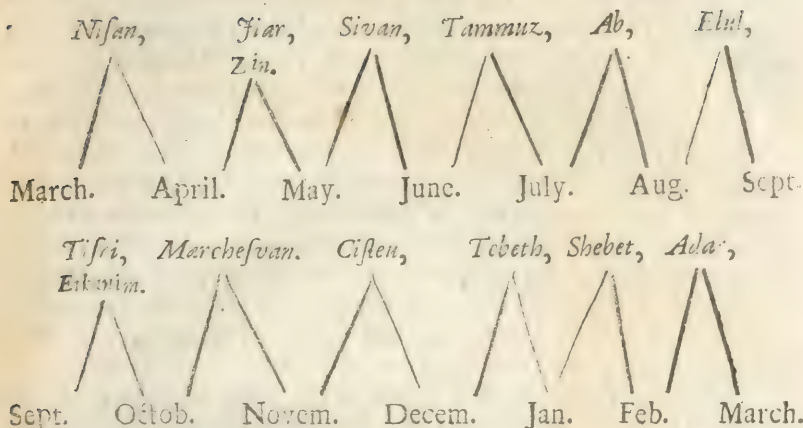 Niſan, Jiar, Sivan, Tammuz, Ab, Elul,
Zin.
March. April. May. June. July. Aug. Sept.
Tiſri, Marcheſvan. Ciſleu, Tebeth, Shebet, Adar,
Sept. Octob. Novem. Decem. Jan. Feb. March.